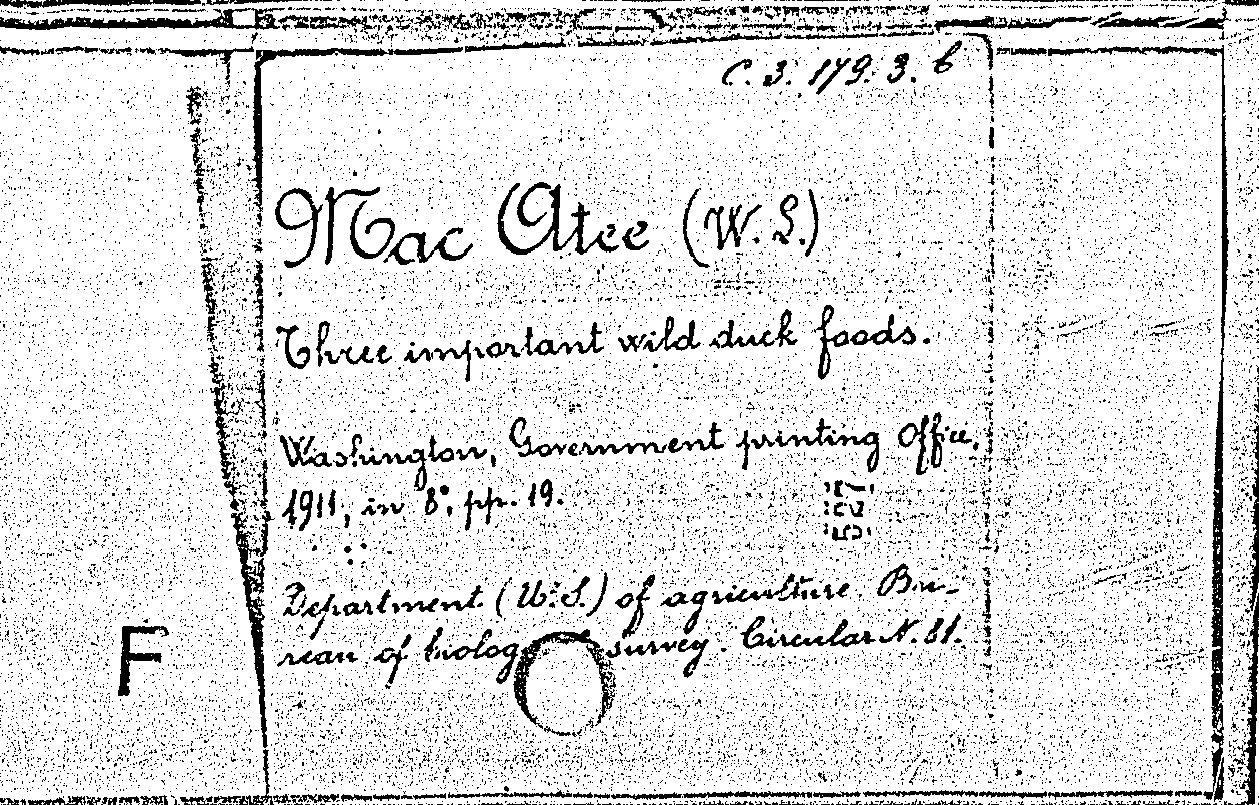 C. 3. 179. 3. 6
Mac Atee (W. L.)
Three important wild duck foods.
Washington, Government printing Office,
1911, in 8°, pp. 19.
527
Department (U. S.) of agriculture. Bu-
reau of biolog survey. Circular N. 81.
F